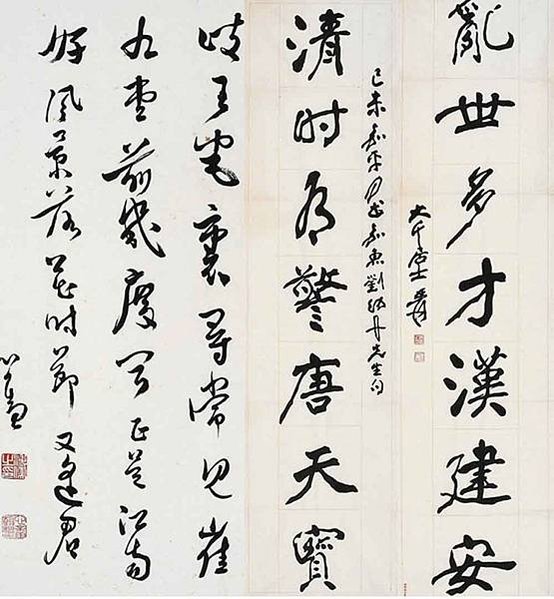 亂世多才漢建安
大千居士爰
己未嘉平月書劉丹先生句
清時警唐天寶
岐王宅裏尋常見崔
九堂前幾度聞正是江南
好風景落花時節又逢君
心畬